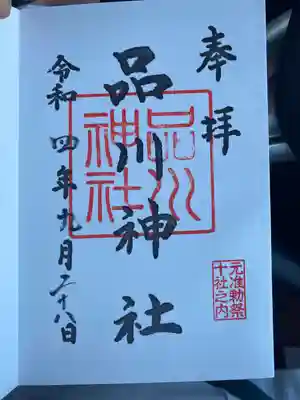 奉拝
品川神社
品川神社
令和四年九月二十八日
元准勅祭
十社之内